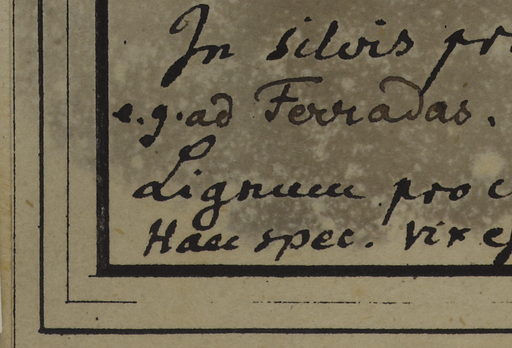 In silvis pr
e.g. ad Ferradas.
Lignum pro c
Haec spec. vix e